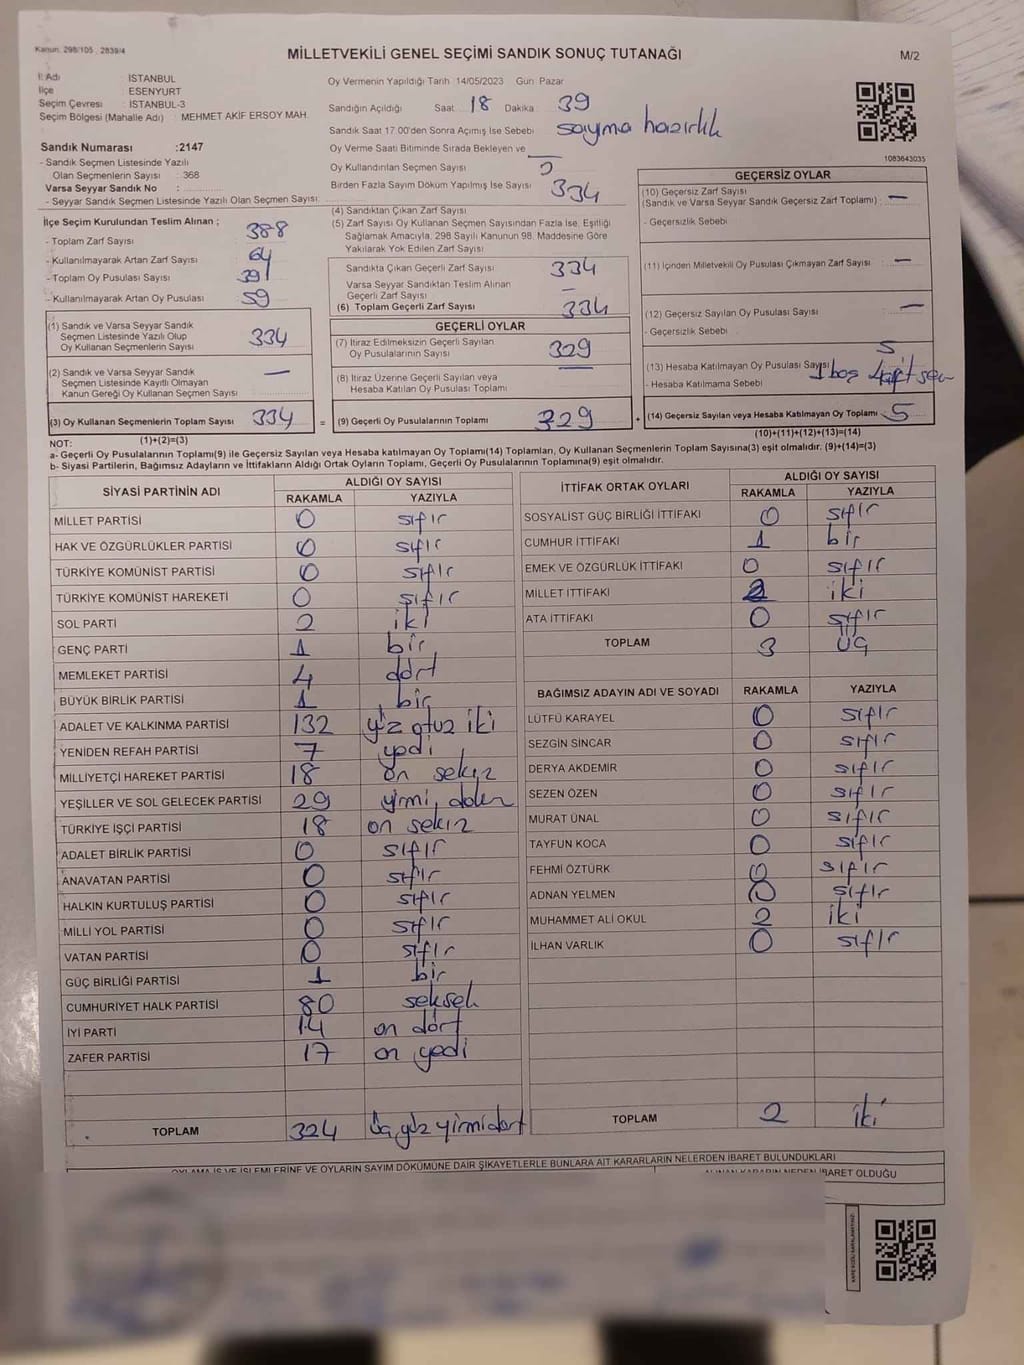 Kanun: 298/105 , 2839/4
MİLLETVEKİLİ GENEL SEÇİMİ SANDIK SONUÇ TUTANAĞI
M/2
İl Adı : İSTANBUL
İlçe : ESENYURT
Seçim Çevresi : İSTANBUL-3
Seçim Bölgesi (Mahalle Adı) : MEHMET AKİF ERSOY MAH.
Oy Vermenin Yapıldığı Tarih 14/05/2023 Gün: Pazar
Sandığın Açıldığı Saat 18 Dakika : 39
Sandık Saat 17.00'den Sonra Açılmış İse Sebebi : sayma hazırlık
Oy Verme Saati Bitiminde Sırada Bekleyen ve
Oy Kullandırılan Seçmen Sayısı
Birden Fazla Sayım Döküm Yapılmış İse Sayısı
1083643035
Sandık Numarası :2147
- Sandık Seçmen Listesinde Yazılı
Olan Seçmenlerin Sayısı : 368
Varsa Seyyar Sandık No :
- Seyyar Sandık Seçmen Listesinde Yazılı Olan Seçmen Sayısı:
İlçe Seçim Kurulundan Teslim Alınan ;
- Toplam Zarf Sayısı : 388
- Kullanılmayarak Artan Zarf Sayısı : 64
- Toplam Oy Pusulası Sayısı : 391
- Kullanılmayarak Artan Oy Pusulası : 59
(1) Sandık ve Varsa Seyyar Sandık
Seçmen Listesinde Yazılı Olup
Oy Kullanan Seçmenlerin Sayısı : 334
(2) Sandık ve Varsa Seyyar Sandık
Seçmen Listesinde Kayıtlı Olmayan
Kanun Gereği Oy Kullanan Seçmen Sayısı : —
(3) Oy Kullanan Seçmenlerin Toplam Sayısı : 334
(4) Sandıktan Çıkan Zarf Sayısı : 334
(5) Zarf Sayısı Oy Kullanan Seçmen Sayısından Fazla İse, Eşitliği
Sağlamak Amacıyla, 298 Sayılı Kanunun 98. Maddesine Göre
Yakılarak Yok Edilen Zarf Sayısı
Sandıkta Çıkan Geçerli Zarf Sayısı : 334
Varsa Seyyar Sandıktan Teslim Alınan
Geçerli Zarf Sayısı : —
(6) Toplam Geçerli Zarf Sayısı : 334
GEÇERLİ OYLAR
(7) İtiraz Edilmeksizin Geçerli Sayılan
Oy Pusulalarının Sayısı : 329
(8) İtiraz Üzerine Geçerli Sayılan veya
Hesaba Katılan Oy Pusulası Toplamı : —
= (9) Geçerli Oy Pusulalarının Toplamı : 329 +
GEÇERSİZ OYLAR
(10) Geçersiz Zarf Sayısı
(Sandık ve Varsa Seyyar Sandık Geçersiz Zarf Toplamı) : —
- Geçersizlik Sebebi :
(11) İçinden Milletvekili Oy Pusulası Çıkmayan Zarf Sayısı : —
(12) Geçersiz Sayılan Oy Pusulası Sayısı : —
- Geçersizlik Sebebi :
(13) Hesaba Katılmayan Oy Pusulası Sayısı : 5
- Hesaba Katılmama Sebebi : 1 boş 4
(14) Geçersiz Sayılan veya Hesaba Katılmayan Oy Toplamı : 5
NOT: (1)+(2)=(3)
(10)+(11)+(12)+(13)=(14)
a- Geçerli Oy Pusulalarının Toplamı(9) ile Geçersiz Sayılan veya Hesaba katılmayan Oy Toplamı(14) Toplamları, Oy Kullanan Seçmenlerin Toplam Sayısına(3) eşit olmalıdır. (9)+(14)=(3)
b- Siyasi Partilerin, Bağımsız Adayların ve İttifakların Aldığı Ortak Oyların Toplamı, Geçerli Oy Pusulalarının Toplamına(9) eşit olmalıdır.
SİYASİ PARTİNİN ADI ALDIĞI OY SAYISI
RAKAMLA YAZIYLA
MİLLET PARTİSİ 0 sıfır
HAK VE ÖZGÜRLÜKLER PARTİSİ 0 sıfır
TÜRKİYE KOMÜNİST PARTİSİ 0 sıfır
TÜRKİYE KOMÜNİST HAREKETİ 0 sıfır
SOL PARTİ 2 iki
GENÇ PARTİ 1 bir
MEMLEKET PARTİSİ 4 dört
BÜYÜK BİRLİK PARTİSİ 1 bir
ADALET VE KALKINMA PARTİSİ 132 y'z otuz iki
YENİDEN REFAH PARTİSİ 7 yedi
MİLLİYETÇİ HAREKET PARTİSİ 18 on sekiz
YEŞİLLER VE SOL GELECEK PARTİSİ 29 yirmi
TÜRKİYE İŞÇİ PARTİSİ 18 on sekiz
ADALET BİRLİK PARTİSİ 0 sıfır
ANAVATAN PARTİSİ 0 sıfır
HALKIN KURTULUŞ PARTİSİ 0 sıfır
MİLLİ YOL PARTİSİ 0 sıfır
VATAN PARTİSİ 0 sıfır
GÜÇ BİRLİĞİ PARTİSİ 1 bir
CUMHURİYET HALK PARTİSİ 80 seksen
İYİ PARTİ 14 on dört
ZAFER PARTİSİ 17 on yedi
TOPLAM 324 üç yüz yirmidört
İTTİFAK ORTAK OYLARI ALDIĞI OY SAYISI
RAKAMLA YAZIYLA
SOSYALİST GÜÇ BİRLİĞİ İTTİFAKI 0 sıfır
CUMHUR İTTİFAKI 1 bir
EMEK VE ÖZGÜRLÜK İTTİFAKI 0 sıfır
MİLLET İTTİFAKI 2 iki
ATA İTTİFAKI 0 sıfır
TOPLAM 3 üç
BAĞIMSIZ ADAYIN ADI VE SOYADI RAKAMLA YAZIYLA
LÜTFÜ KARAYEL 0 sıfır
SEZGİN SİNCAR 0 sıfır
DERYA AKDEMİR 0 sıfır
SEZEN ÖZEN 0 sıfır
MURAT ÜNAL 0 sıfır
TAYFUN KOCA 0 sıfır
FEHMİ ÖZTÜRK 0 sıfır
ADNAN YELMEN 0 sıfır
MUHAMMET ALİ OKUL 2 iki
İLHAN VARLIK 0 sıfır
TOPLAM 2 iki
OYLAMA İŞ VE İŞLEMLERİNE VE OYLARIN SAYIM DÖKÜMÜNE DAİR ŞİKAYETLERLE BUNLARA AİT KARARLARIN NELERDEN İBARET BULUNDUKLARI
ALINAN KARARIN NEDEN İBARET OLDUĞU